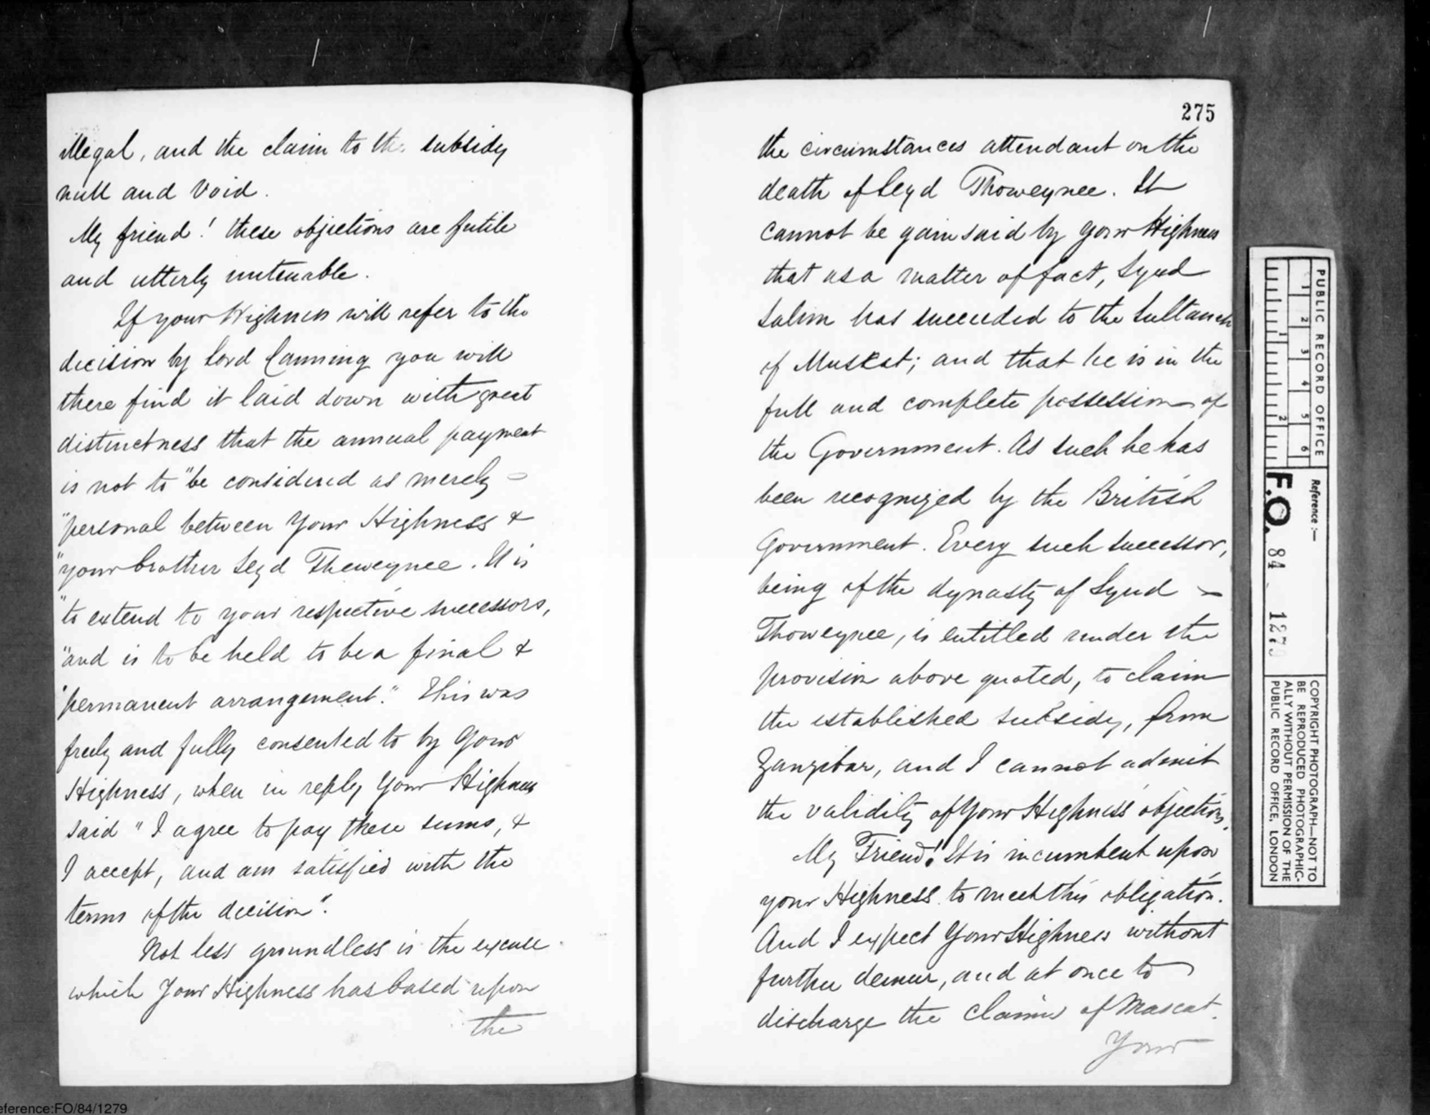 illegal, and the claim to the subsidy
null and void.
My friend! these objections are futile
and utterly untenable.
If your Highness will refer to the
decision by Lord Canning you will
there find it laid down with great
distinctness that the annual payment
is not to "be considered as merely =
"personal between Your Highness &
"your brother Seyd Theweynee. It is
"to extend to your respective successors,
"and is to be held to be a final &
"permanent arrangement." This was
freely and fully consented to by Your
Highness, when in reply Your Highness
said "I agree to pay these sums, &
I accept, and am satisfied with the
terms of the decision".
Not less groundless is the excuse
which Your Highness has based upon
the
275
the circumstances attendant on the
death of Seyd Thoweynee. It
cannot be gainsaid by your Highness
that as a matter of fact, Syud
Salim has succeeded to the Sultanate
of Muskat; and that he is in the
full and complete possession of
the Government. As such he has
been recognized by the British
Government. Every such successor,
being of the dynasty of Syud
Thoweynee, is entitled under the
provision above quoted, to claim
the established subsidy, from
Zanzibar, and I cannot admit
the validity of Your Highness' objection.
My Friend! It is incumbent upon
your Highness to meet this obligation.
And I expect Your Highness without
further demur, and at once to
discharge the claims of Mascat.
Your
PUBLIC RECORD OFFICE
1 2 3 4 5 6
1 2
Reference:-
F.O. 84 1279
COPYRIGHT PHOTOGRAPH—NOT TO
BE REPRODUCED PHOTOGRAPHIC-
ALLY WITHOUT PERMISSION OF THE
PUBLIC RECORD OFFICE, LONDON
eference:FO/84/1279